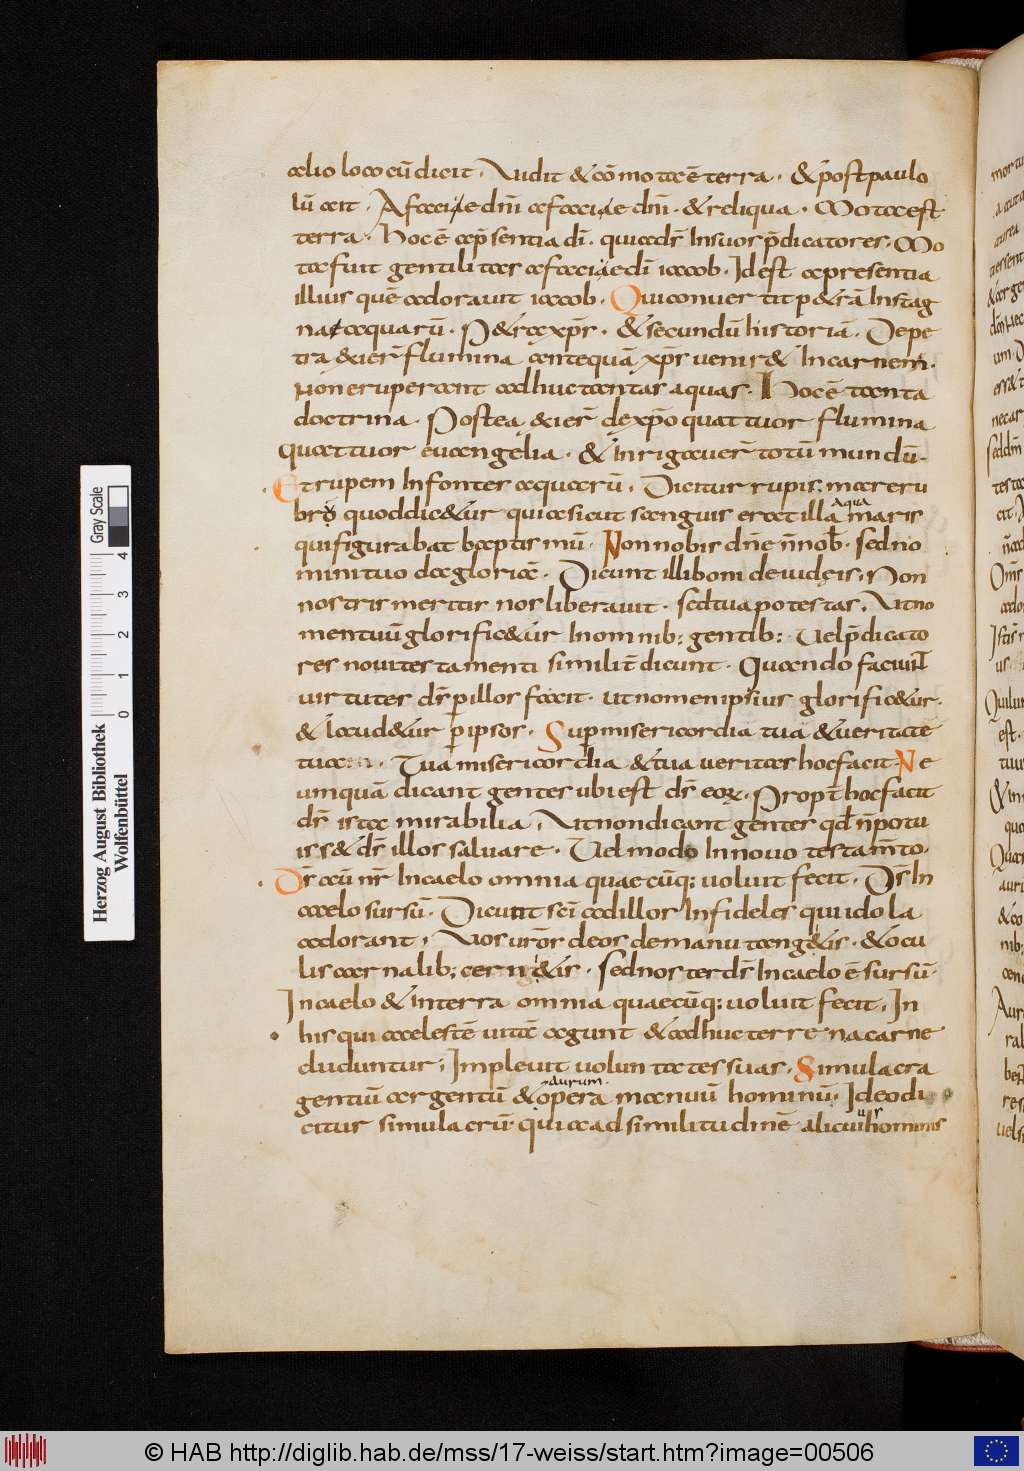 alio loco cū dicit. Vidit & cōmota ē terra. & post paulo
lū ait. A faciae dn̄i a faciae dn̄i. & reliqua. Mota est
terra. hoc ē a p̄sentia dī. qui ad s̄ in suos p̄dicatores. Mo
ta fuit gentilitas a faciae dī iacob. Id est a presentia
illius quē adorauit iacob. Qui conuertit p&rā in stag
na aquarū. P&ra xp̄s. & secundū historiā. De pe
tra exier̄ flumina antequā xp̄s uenir& in carnem.
Non eruperant adhuc tantas aquas. Hoc ē tanta
doctrina. Postea exier̄ de xp̄o quattuor flumina
quattuor euangelia. & inrigauer̄ totū mundū.
Et rupem in fontes aquarū. Dicitur rupis; mare ru
bro quod dic&ur quia sicut sanguis erat illa aqua maris
qui figurabat baptismū. Non nobis dn̄e n̄ nob̄. sed no
mini tuo da gloriā. Dicunt illi boni de iudeis. Non
nostris meritis nos liberauit. sed tua potestas. Vt no
men tuū glorific&ur in omnib; gentib; Vel p̄dicato
res noui testamenti similit̄ dicunt. Quando
uirtutes ds̄ p illos facit. ut nomen ipsius glorific&ur.
& laud&ur p ipsos. Sup misericordia tua & ueritate
tua. Tua misericordia & tua ueritas hoc facit Ne
umquā dicant gentes ubi est ds̄ eoꝝ. Propt̄ hoc facit
ds̄ ista mirabilia. Vt non dicant gentes qd̄ n̄ potu
iss& ds̄ illos saluare. Vel modo in nouo testam̄to.
Ds̄ aū nr̄ in caelo omnia quaecūq; uoluit fecit. Ds̄ in
caelo sursū. Dicunt sc̄i ad illos infideles qui idola
adorant. Vos uros deos de manu tang&is. & ocu
lis carnalib; cern&is. sed noster ds̄ in caelo ē sursū.
In caelo & in terra omnia quaecūq; uoluit fecit. In
his qui caelestē uitā agunt & adhuc terrena carne
duduntur. Impleuit uoluntates suas. Simulacra
gentiū argentū & aurum opera manuū hominū. Ideo di
citur simulacrū. quia ad similitudinē alicuius hominis
Herzog August Bibliothek
Wolfenbüttel
Gray Scale
0 1 2 3 4
© HAB http://diglib.hab.de/mss/17-weiss/start.htm?image=00506